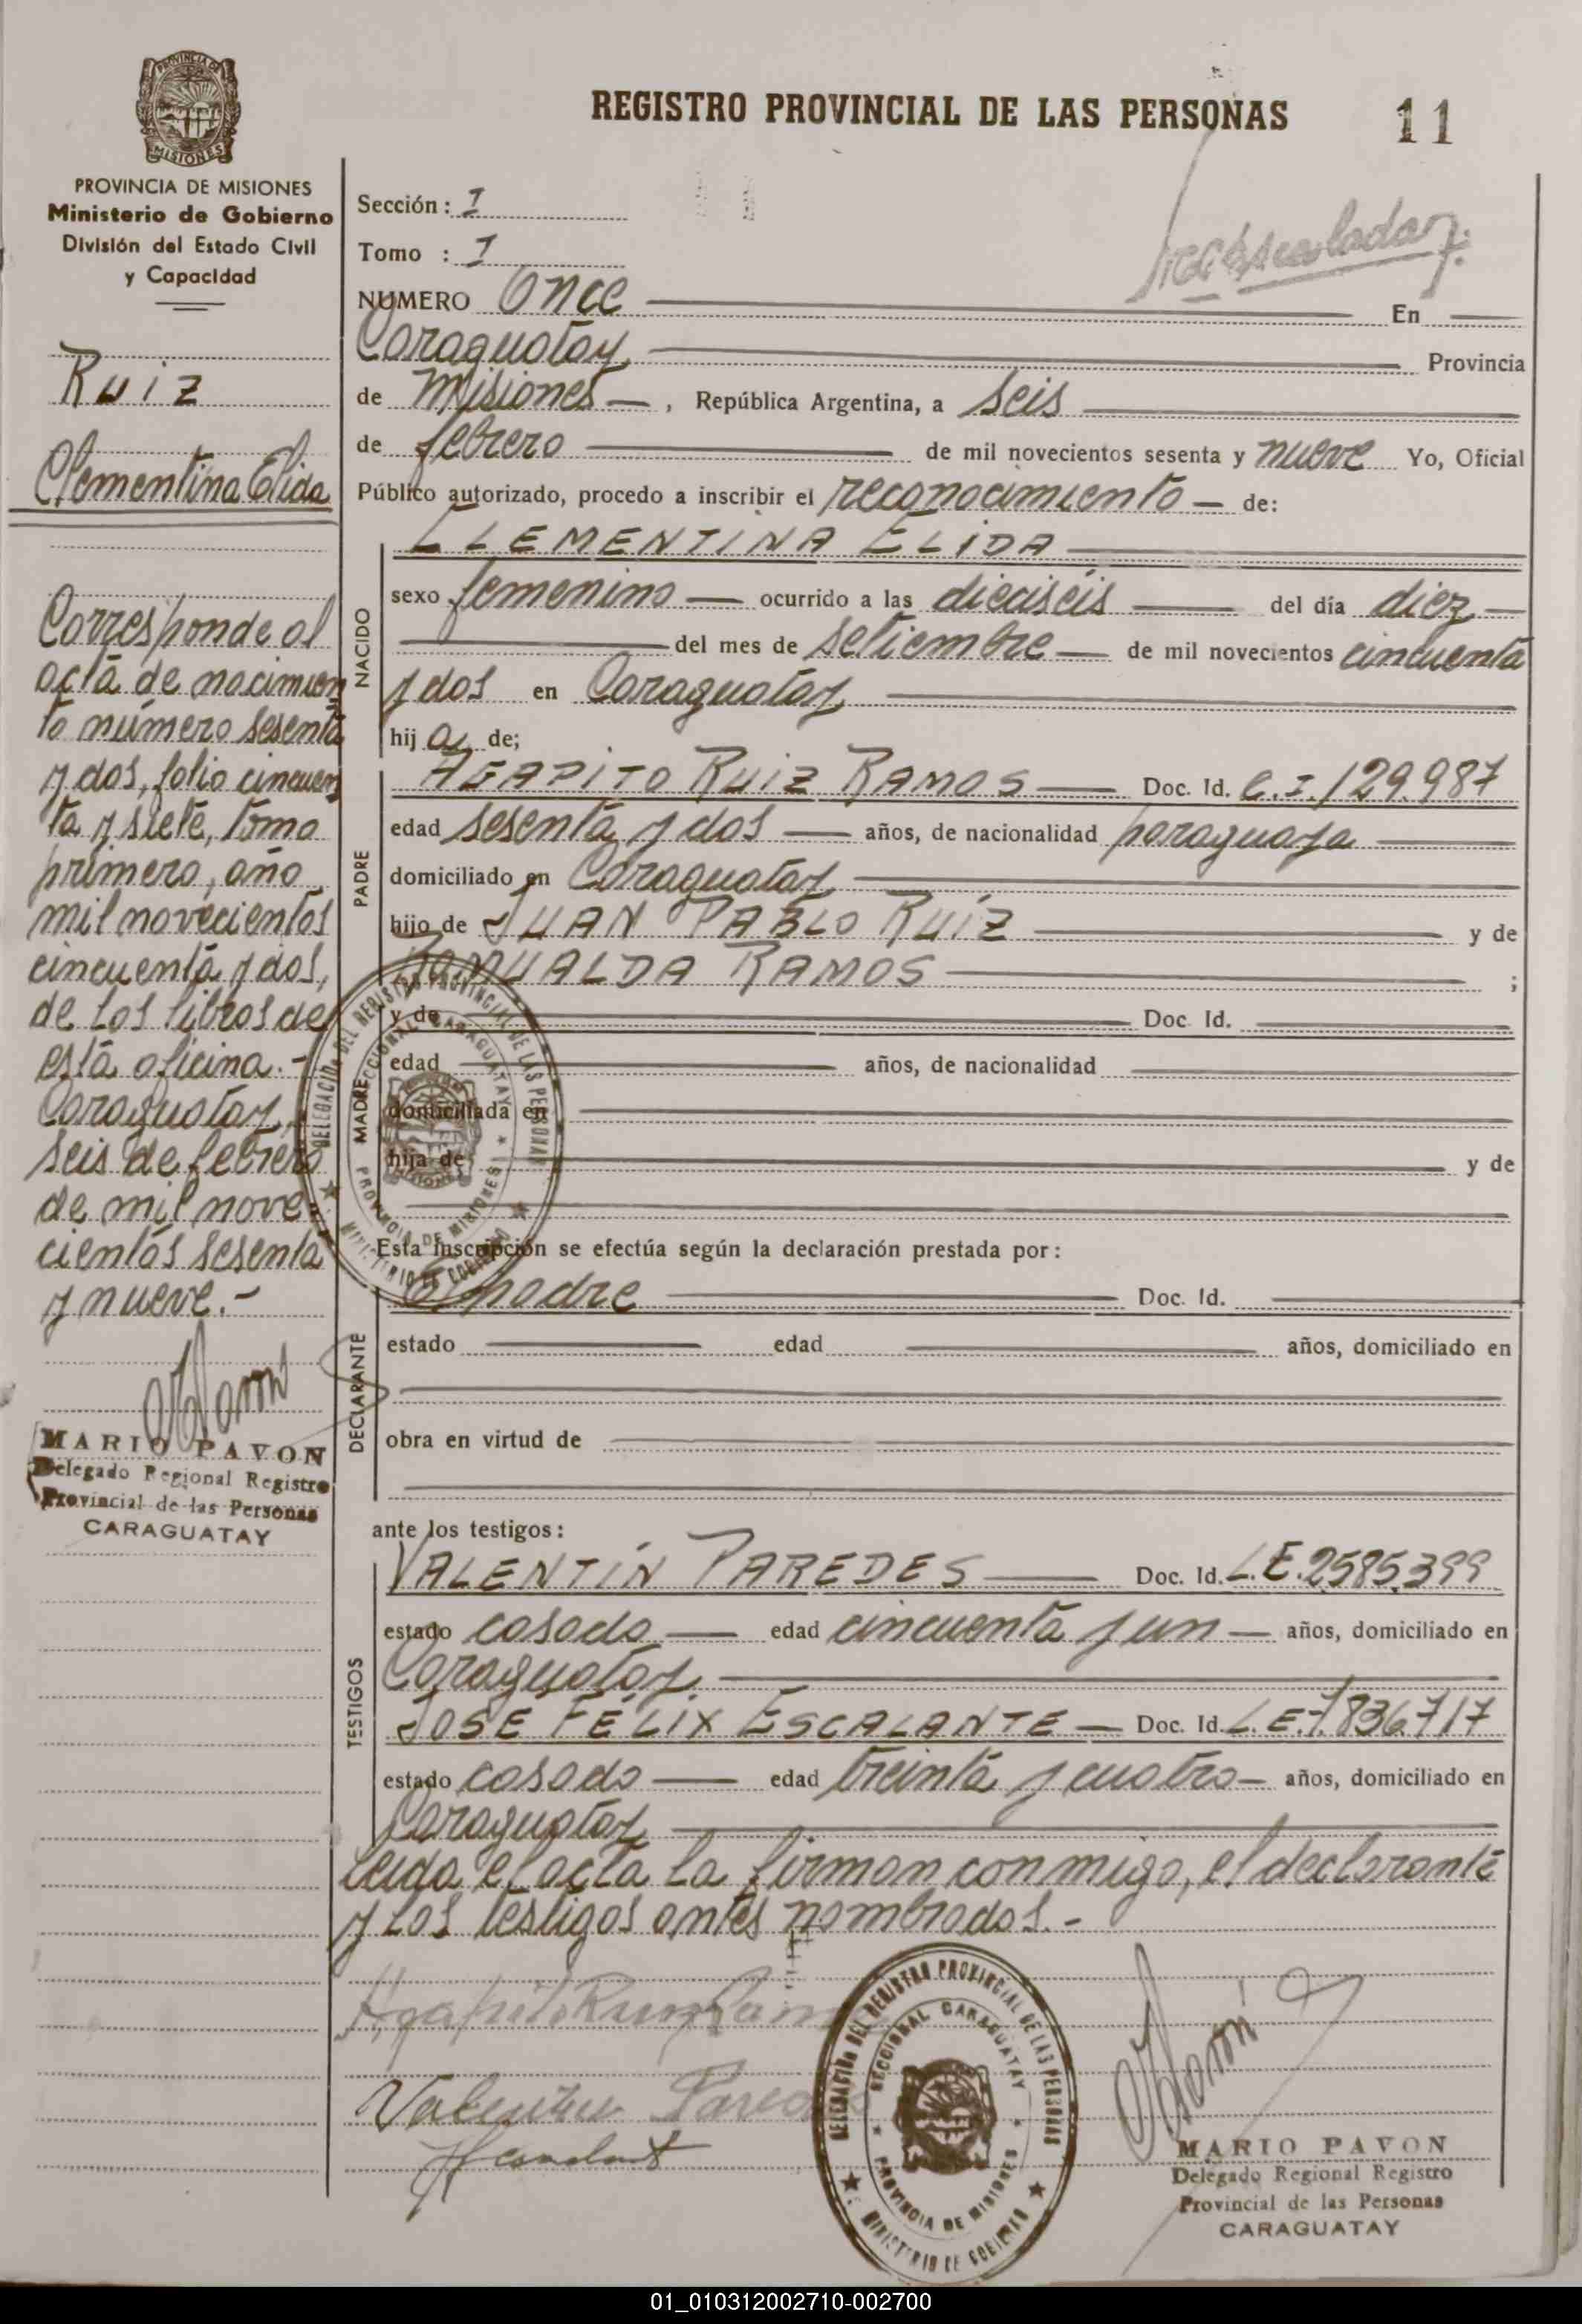 PROVINCIA DE
MISIONES
REGISTRO PROVINCIAL DE LAS PERSONAS
11
PROVINCIA DE MISIONES
Ministerio de Gobierno
División del Estado Civil
y Capacidad
Ruiz
Clementina Elida
Corresponde al
acta de nacimien
to número sesenta
y dos, folio cincuen
ta y siete, tomo
primero, año
mil novecientos
cincuenta y dos,
de los libros de
esta oficina.-
Caraguatay,
seis de febrero
de mil nove
cientos sesenta
y nueve.-
MARIO PAVON
Delegado Regional Registro
Provincial de las Personas
CARAGUATAY
Sección: I
Tomo : I
NUMERO Once En
Caraguatay Provincia
de Misiones , República Argentina, a seis
de febrero de mil novecientos sesenta y nueve Yo, Oficial
Público autorizado, procedo a inscribir el reconocimiento de:
CLEMENTINA ELIDA
NACIDO
sexo femenino ocurrido a las dieciséis del día diez
del mes de setiembre de mil novecientos cincuenta
y dos en Caraguatay
hija de;
PADRE
AGAPITO RUIZ RAMOS Doc. Id. C.I. 129.987
edad sesenta y dos años, de nacionalidad paraguaya
domiciliado en Caraguatay
hijo de JUAN PABLO RUIZ y de
ROMUALDA RAMOS ;
MADRE
y de Doc. Id.
edad años, de nacionalidad
domiciliada en
hija de y de
DELEGACION DEL REGISTRO PROVINCIAL DE LAS PERSONAS
SECCIONAL CARAGUATAY
PROVINCIA DE MISIONES
MINISTERIO DE GOBIERNO
Esta inscripción se efectúa según la declaración prestada por:
DECLARANTE
El padre Doc. Id.
estado edad años, domiciliado en
obra en virtud de
ante los testigos:
TESTIGOS
VALENTÍN PAREDES Doc. Id. L.E. 2.585.399
estado casado edad cincuenta y un años, domiciliado en
Caraguatay.
JOSE FÉLIX ESCALANTE Doc. Id. L.E. 7.836.717
estado casado edad treinta y cuatro años, domiciliado en
Caraguatay
Leída el acta la firman conmigo, el declarante
y los testigos antes nombrados.-
Agapito Ruiz Ram
Valentin Paredes
DELEGACION DEL REGISTRO PROVINCIAL DE LAS PERSONAS
SECCIONAL CARAGUATAY
PROVINCIA DE MISIONES
MINISTERIO DE GOBIERNO
MARIO PAVON
Delegado Regional Registro
Provincial de las Personas
CARAGUATAY
01_010312002710-002700